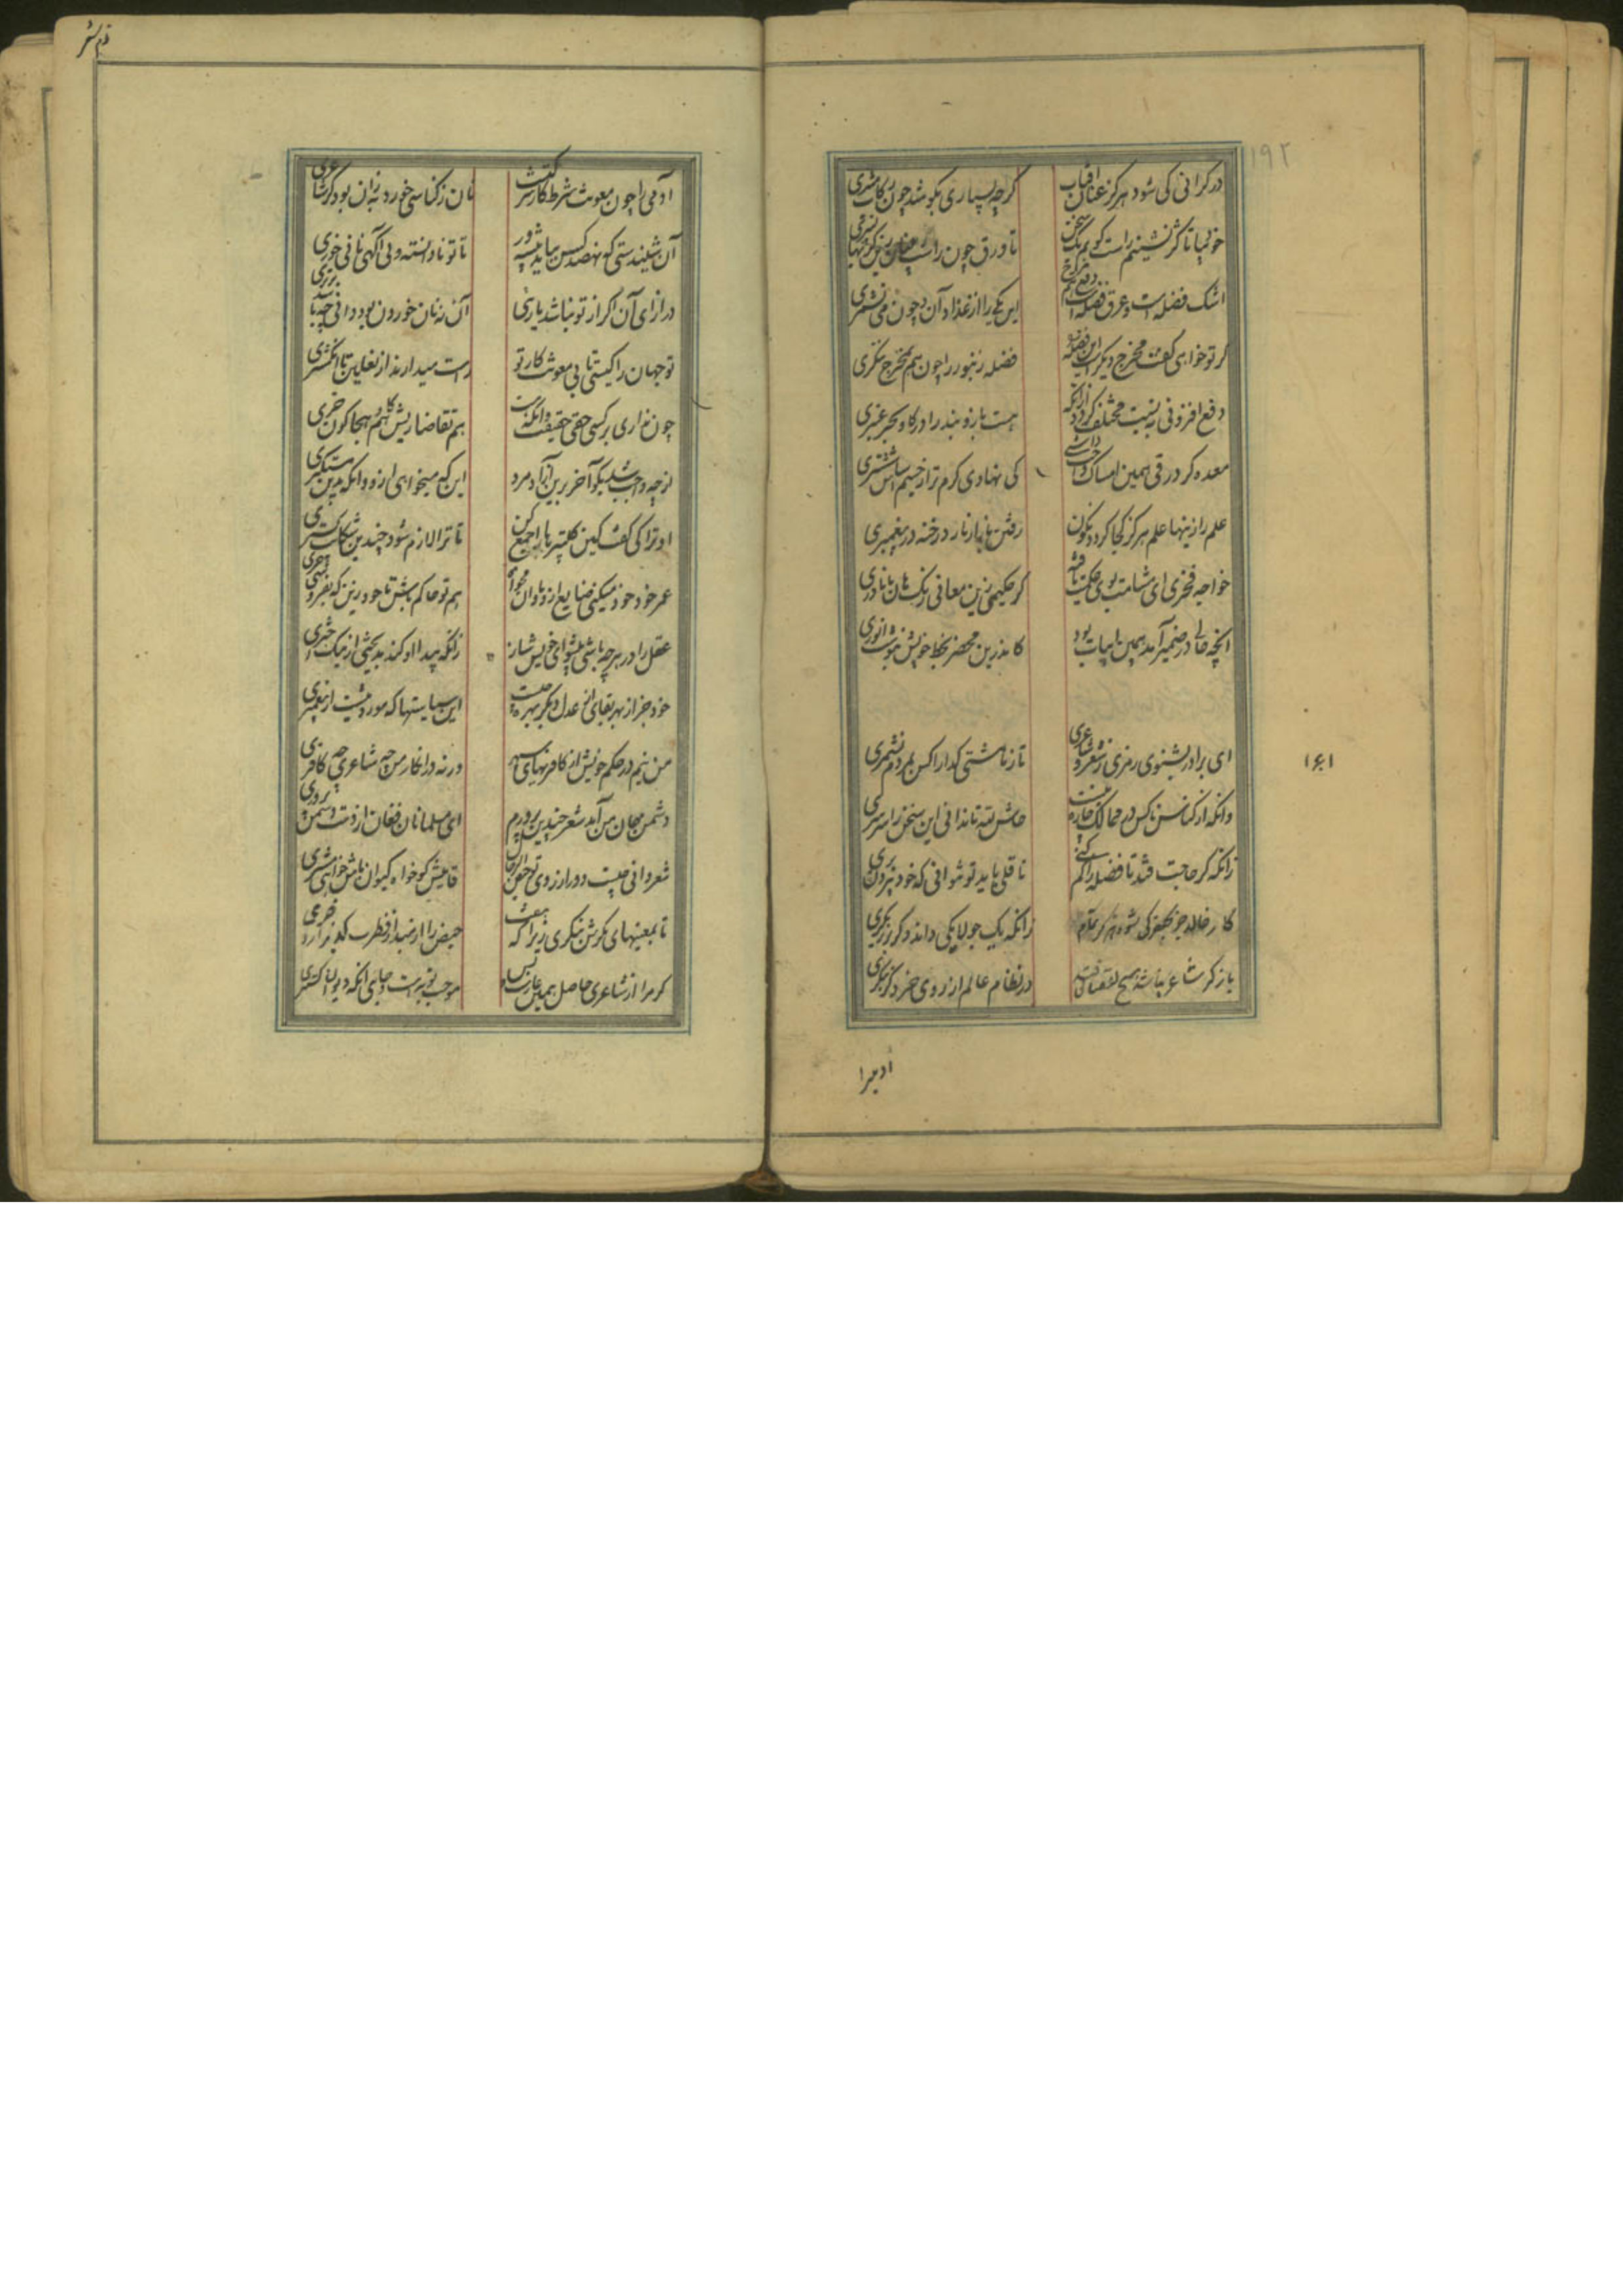 ۱۹۲
در کرانی کی شود هرگز عنان آفتاب گرچه بسیاری بکوشد چون رکاب مشتری
اشک فضله است و عرق فضله این یکی را از غذا دان چون نمی‌شمری
گر تو خواهی گفت مخرج دیگرست این فضله فضله زنبور را چون هم مخرج ننگری
دفع افزونی به نسبت مختلف گردد از آنکه
معده گر در قی همین امساک کی نهادی کرم ترا از خیسم
علم را زینها علم هرگز کجا گردد نگون رفتن نار رخنه در پیغمبری
خواجه فخری ای مشامت بوی حکمت یافته گر حکیمی زین معانی رنگ هان تا ناوری
آنچه حالی در ضمیر آمد همین ابیات بود کاندرین محضر بخط خویش بنوشت انوری
ای برادر بشنوی رمزی ز شعر و شاعری تا ز ما مشتی گدا را کس بمردم نشمری
وانکه از کناس ناکس در ممالک چاره نیست حاش لله تا ندانی این سخن را سرسری
زانکه گر حاجت فتد تا فضله را کم کنی ناقلی باید تو نتوانی که خود بیرون بری
کار خالد جز بجعفر کی شود هرگز تمام زانکه یک جولاهگی داند دگر برزیگری
باز گر شاعر نباشد هیچ نقصانی فتد در نظام عالم از روی خرد گر بنگری
۱۶۱
آدمیرا
ذم شعر
آدمی را چون معونت شرط کار شرکتست نان ز کناسی خورد به زان بود کز شاعری
آن شنیدستی که نهصد کس بباید پیشه‌ور تا تو نادانسته و بی آگهی نانی خوری
در ازای آن اگر از تو نباشد یاری آن نه نان خوردن بود دانی چه باشد مدبری
تو جهان را کیستی تا بی معونت کار تو راست میدارند از نعلین تا انگشتری
چون نداری بر کسی حقی حقیقت دانکه هست هم تقاضا ریش گاوی هم هجا کون خری
از چه واجب شد بگو آخر برین آزاد مرد این که میخواهی ازو وانکه بدین مستکبری
او ترا کی گفت کین کلپتره‌ها را جمع کن تا ترا لازم شود چندین شکایت گستری
عمر خود خود میکنی ضایع ازو تاوان مخواه هم تو حاکم باش تا خود زین که بفروشی خری
عقل را در هر چه باشی پیشوای خویش ساز زانکه پیدا او کند بدبختی از نیک اختری
خود جز از بهر بقای عدل دیگر بهر چیست این سیاستها که موروثست از پیغمبری
من نیم در حکم خویش از کافریهای سپهر ورنه در انکار من چه شاعری چه کافری
دشمن جان من آمد شعر چندین پرورم ای مسلمانان فغان از دست دشمن پروری
شعر دانی چیست دور از روی تو حیض الرجال قایلش گو خواه کیوان باش خواهی مشتری
تا بمعنیهای بکرش ننگری زیرا که نیست حیض را در مبدأ فطرت گریز از دختری
گر مرا از شاعری حاصل همین عارست و بس موجب توبه است و جای آنکه دیوان بستری